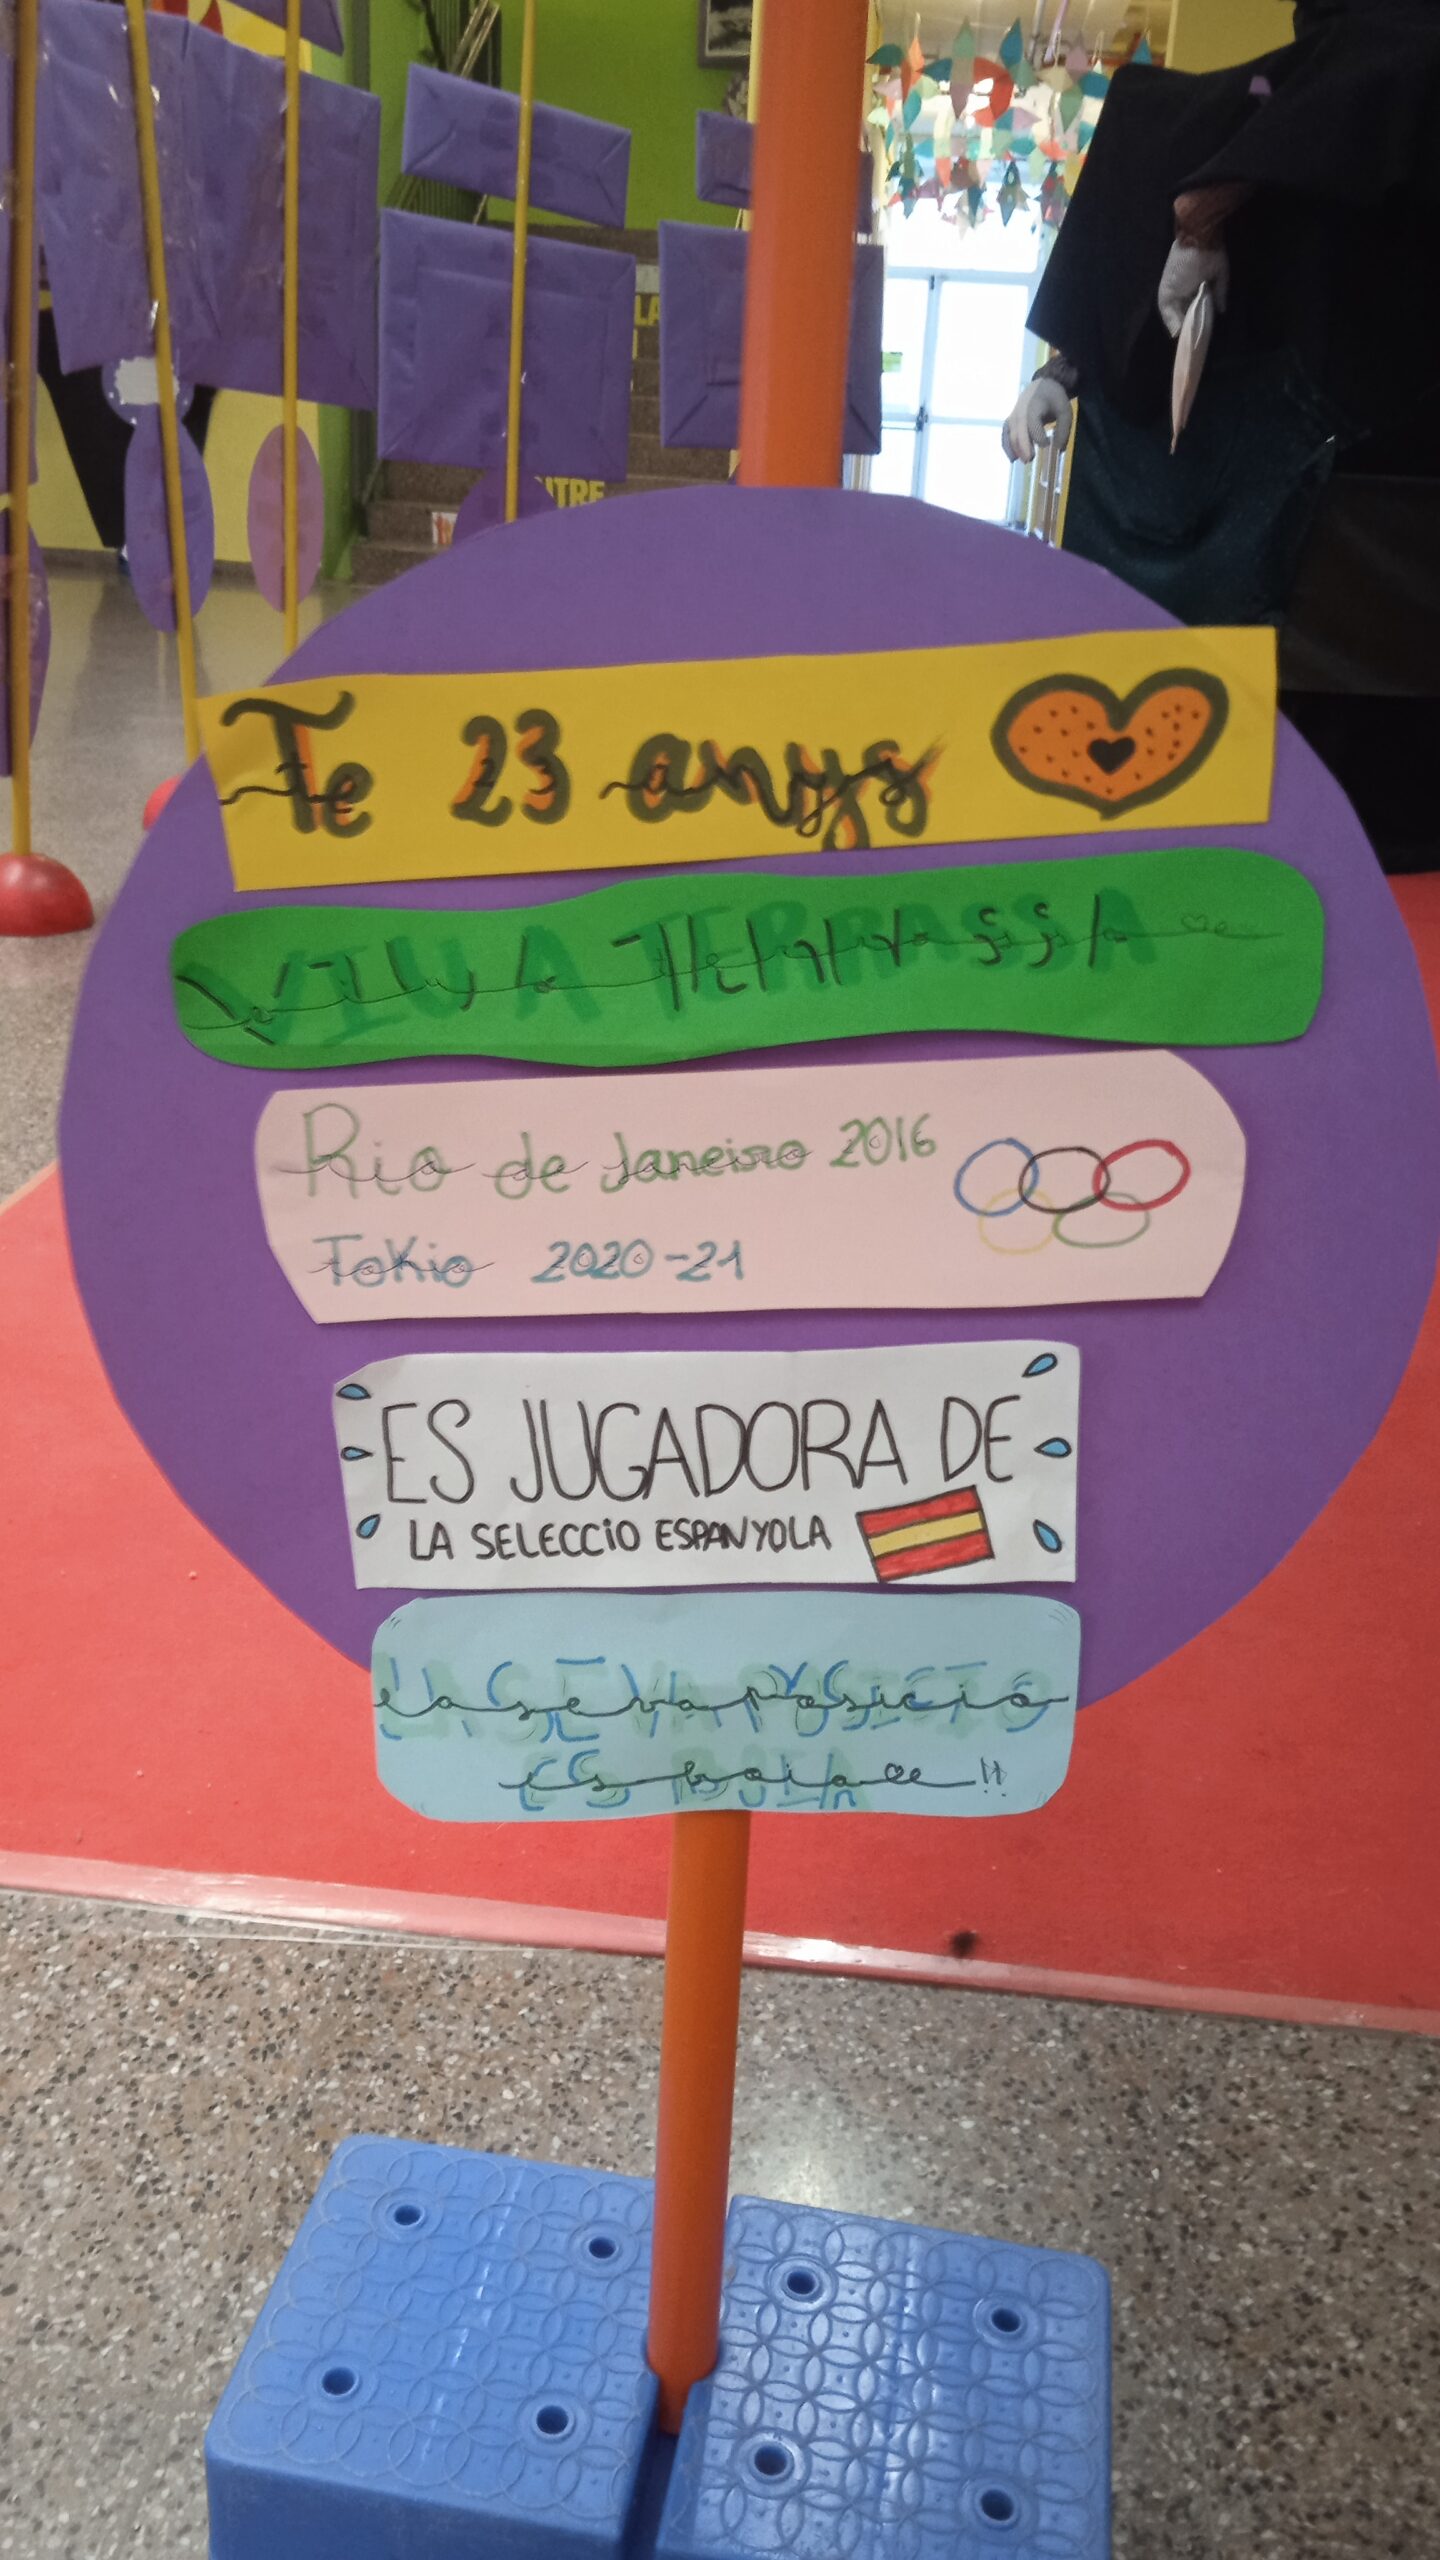 Te 23 anys
VIU A TERRASSA
Rio de Janeiro 2016
Tokio 2020-21
ES JUGADORA DE
LA SELECCIO ESPANYOLA
La seva posicio
es boia!!